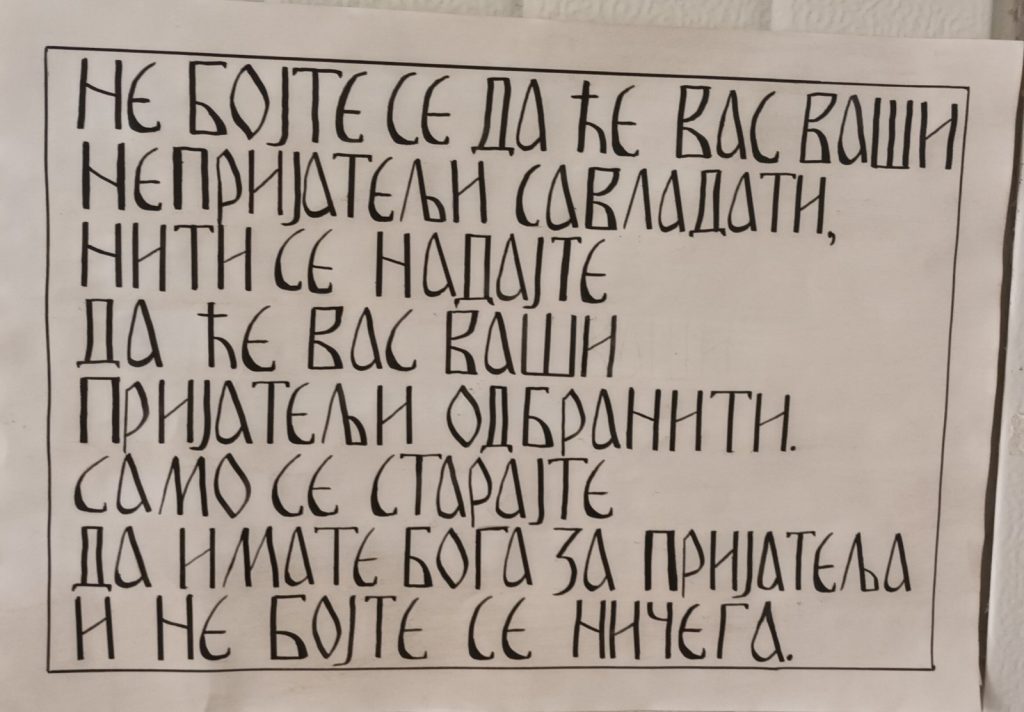 НЕ БОЈТЕ СЕ ДА ЋЕ ВАС ВАШИ
НЕПРИЈАТЕЉИ САВЛАДАТИ,
НИТИ СЕ НАДАЈТЕ
ДА ЋЕ ВАС ВАШИ
ПРИЈАТЕЉИ ОДБРАНИТИ.
САМО СЕ СТАРАЈТЕ
ДА ИМАТЕ БОГА ЗА ПРИЈАТЕЉА
И НЕ БОЈТЕ СЕ НИЧЕГА.